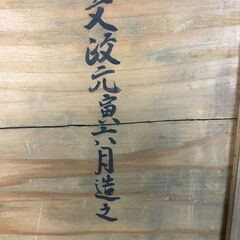 文政元寅六月造之